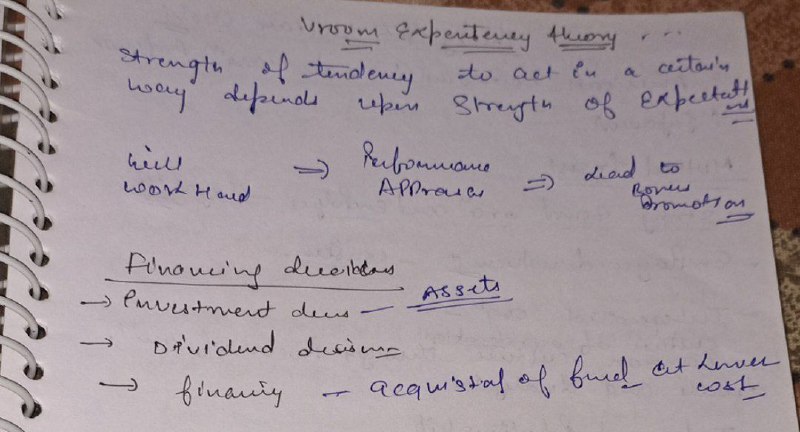 Vroom Expentency theory ...
Strength of tendency to act in a certain
way depends upon Strength of Expectati
ons
will ⇒ Performance ⇒ Lead to
work Hard Appraisal Bonus
promotion
Financing decisions
→ Investment decns — Assets
→ Dividend decisions
→ financing — acquistal of fund at lower
cost